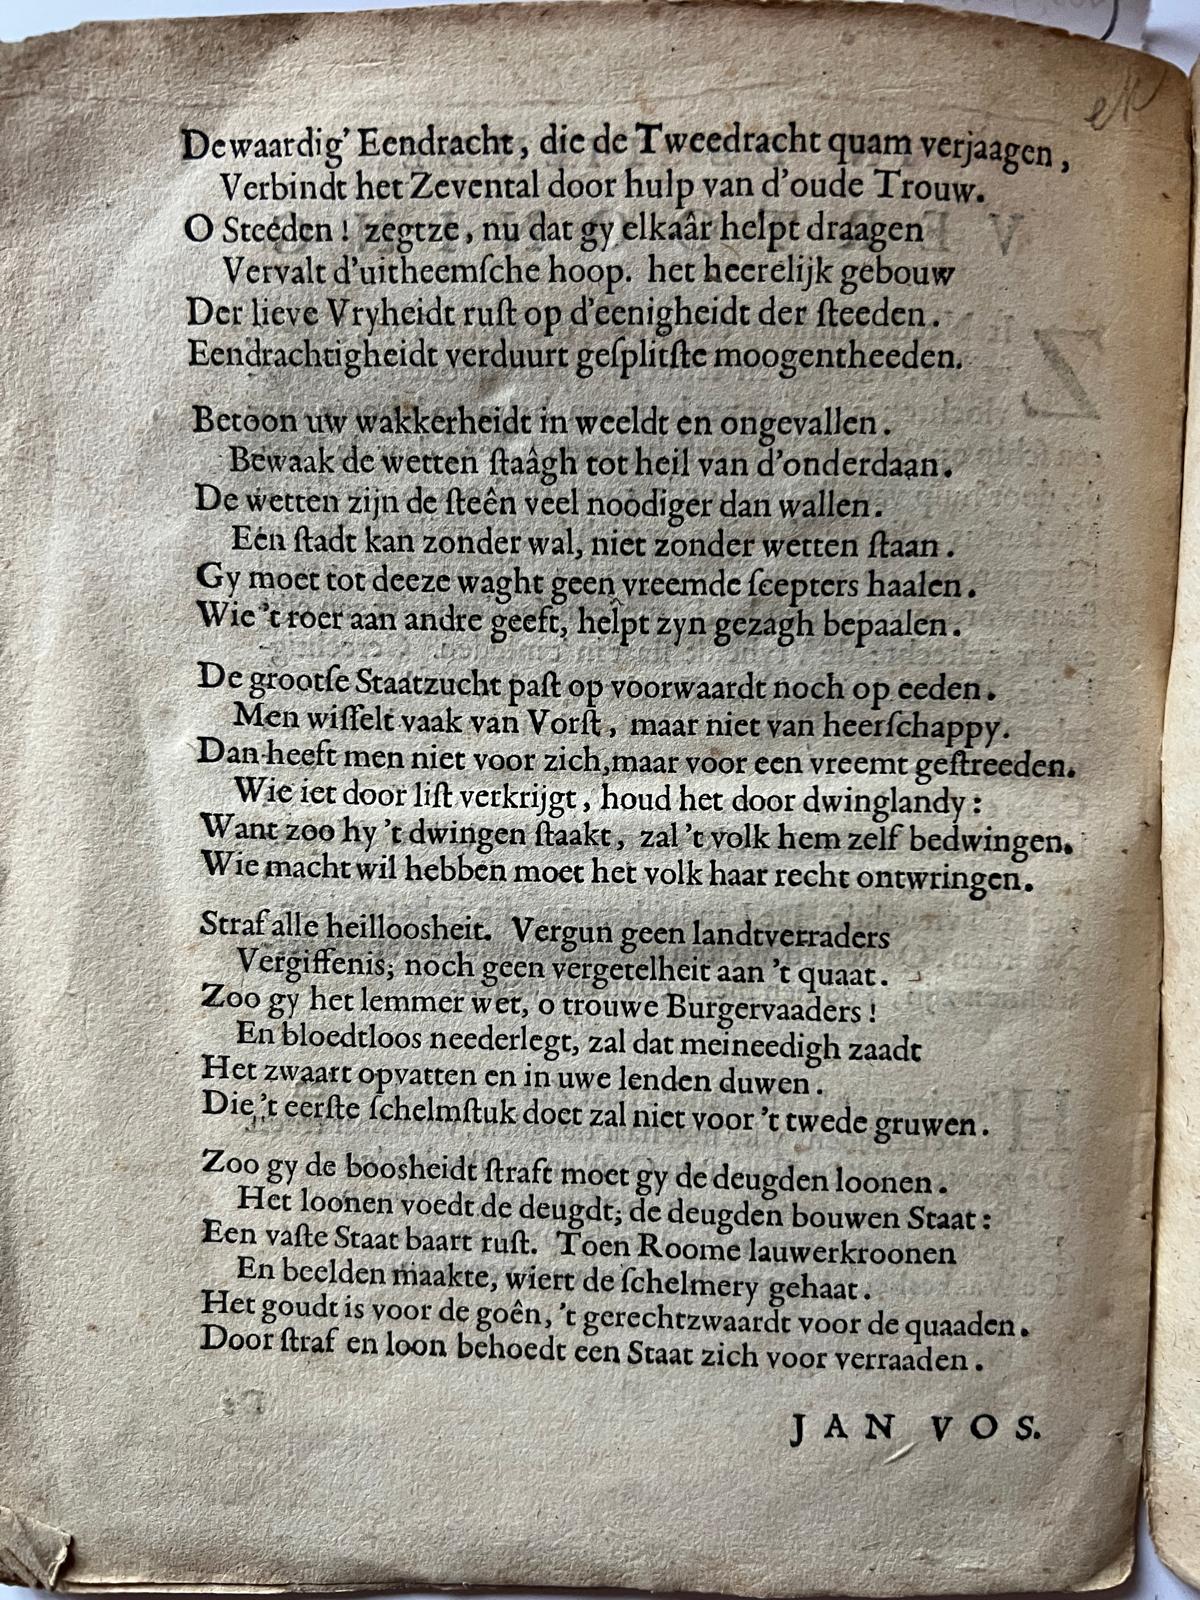 De waardig' Eendracht, die de Tweedracht quam verjaagen,
Verbindt het Zevental door hulp van d'oude Trouw.
O Steeden! zegtze, nu dat gy elkaâr helpt draagen
Vervalt d'uitheemſche hoop. het heerelijk gebouw
Der lieve Vryheidt ruſt op d'eenigheidt der ſteeden.
Eendrachtigheidt verduurt geſplitſte moogentheeden.
Betoon uw wakkerheidt in weeldt en ongevallen.
Bewaak de wetten ſtaâgh tot heil van d'onderdaan.
De wetten zijn de ſteên veel noodiger dan wallen.
Een ſtadt kan zonder wal, niet zonder wetten ſtaan.
Gy moet tot deeze waght geen vreemde ſcepters haalen.
Wie 't roer aan andre geeft, helpt zyn gezagh bepaalen.
De grootſe Staatzucht paſt op voorwaardt noch op eeden.
Men wiſſelt vaak van Vorſt, maar niet van heerſchappy.
Dan heeft men niet voor zich, maar voor een vreemt geſtreeden.
Wie iet door liſt verkrijgt, houd het door dwinglandy:
Want zoo hy 't dwingen ſtaakt, zal 't volk hem zelf bedwingen.
Wie macht wil hebben moet het volk haar recht ontwringen.
Straf alle heilloosheit. Vergun geen landtverraders
Vergiffenis; noch geen vergetelheit aan 't quaat.
Zoo gy het lemmer wet, o trouwe Burgervaaders!
En bloedtloos neederlegt, zal dat meineedigh zaadt
Het zwaart opvatten en in uwe lenden duwen.
Die 't eerſte ſchelmſtuk doet zal niet voor 't twede gruwen.
Zoo gy de boosheidt ſtraft moet gy de deugden loonen.
Het loonen voedt de deugdt; de deugden bouwen Staat:
Een vaſte Staat baart ruſt. Toen Roome lauwerkroonen
En beelden maakte, wiert de ſchelmery gehaat.
Het goudt is voor de goên, 't gerechtzwaardt voor de quaaden.
Door ſtraf en loon behoedt een Staat zich voor verraaden.
JAN VOS.